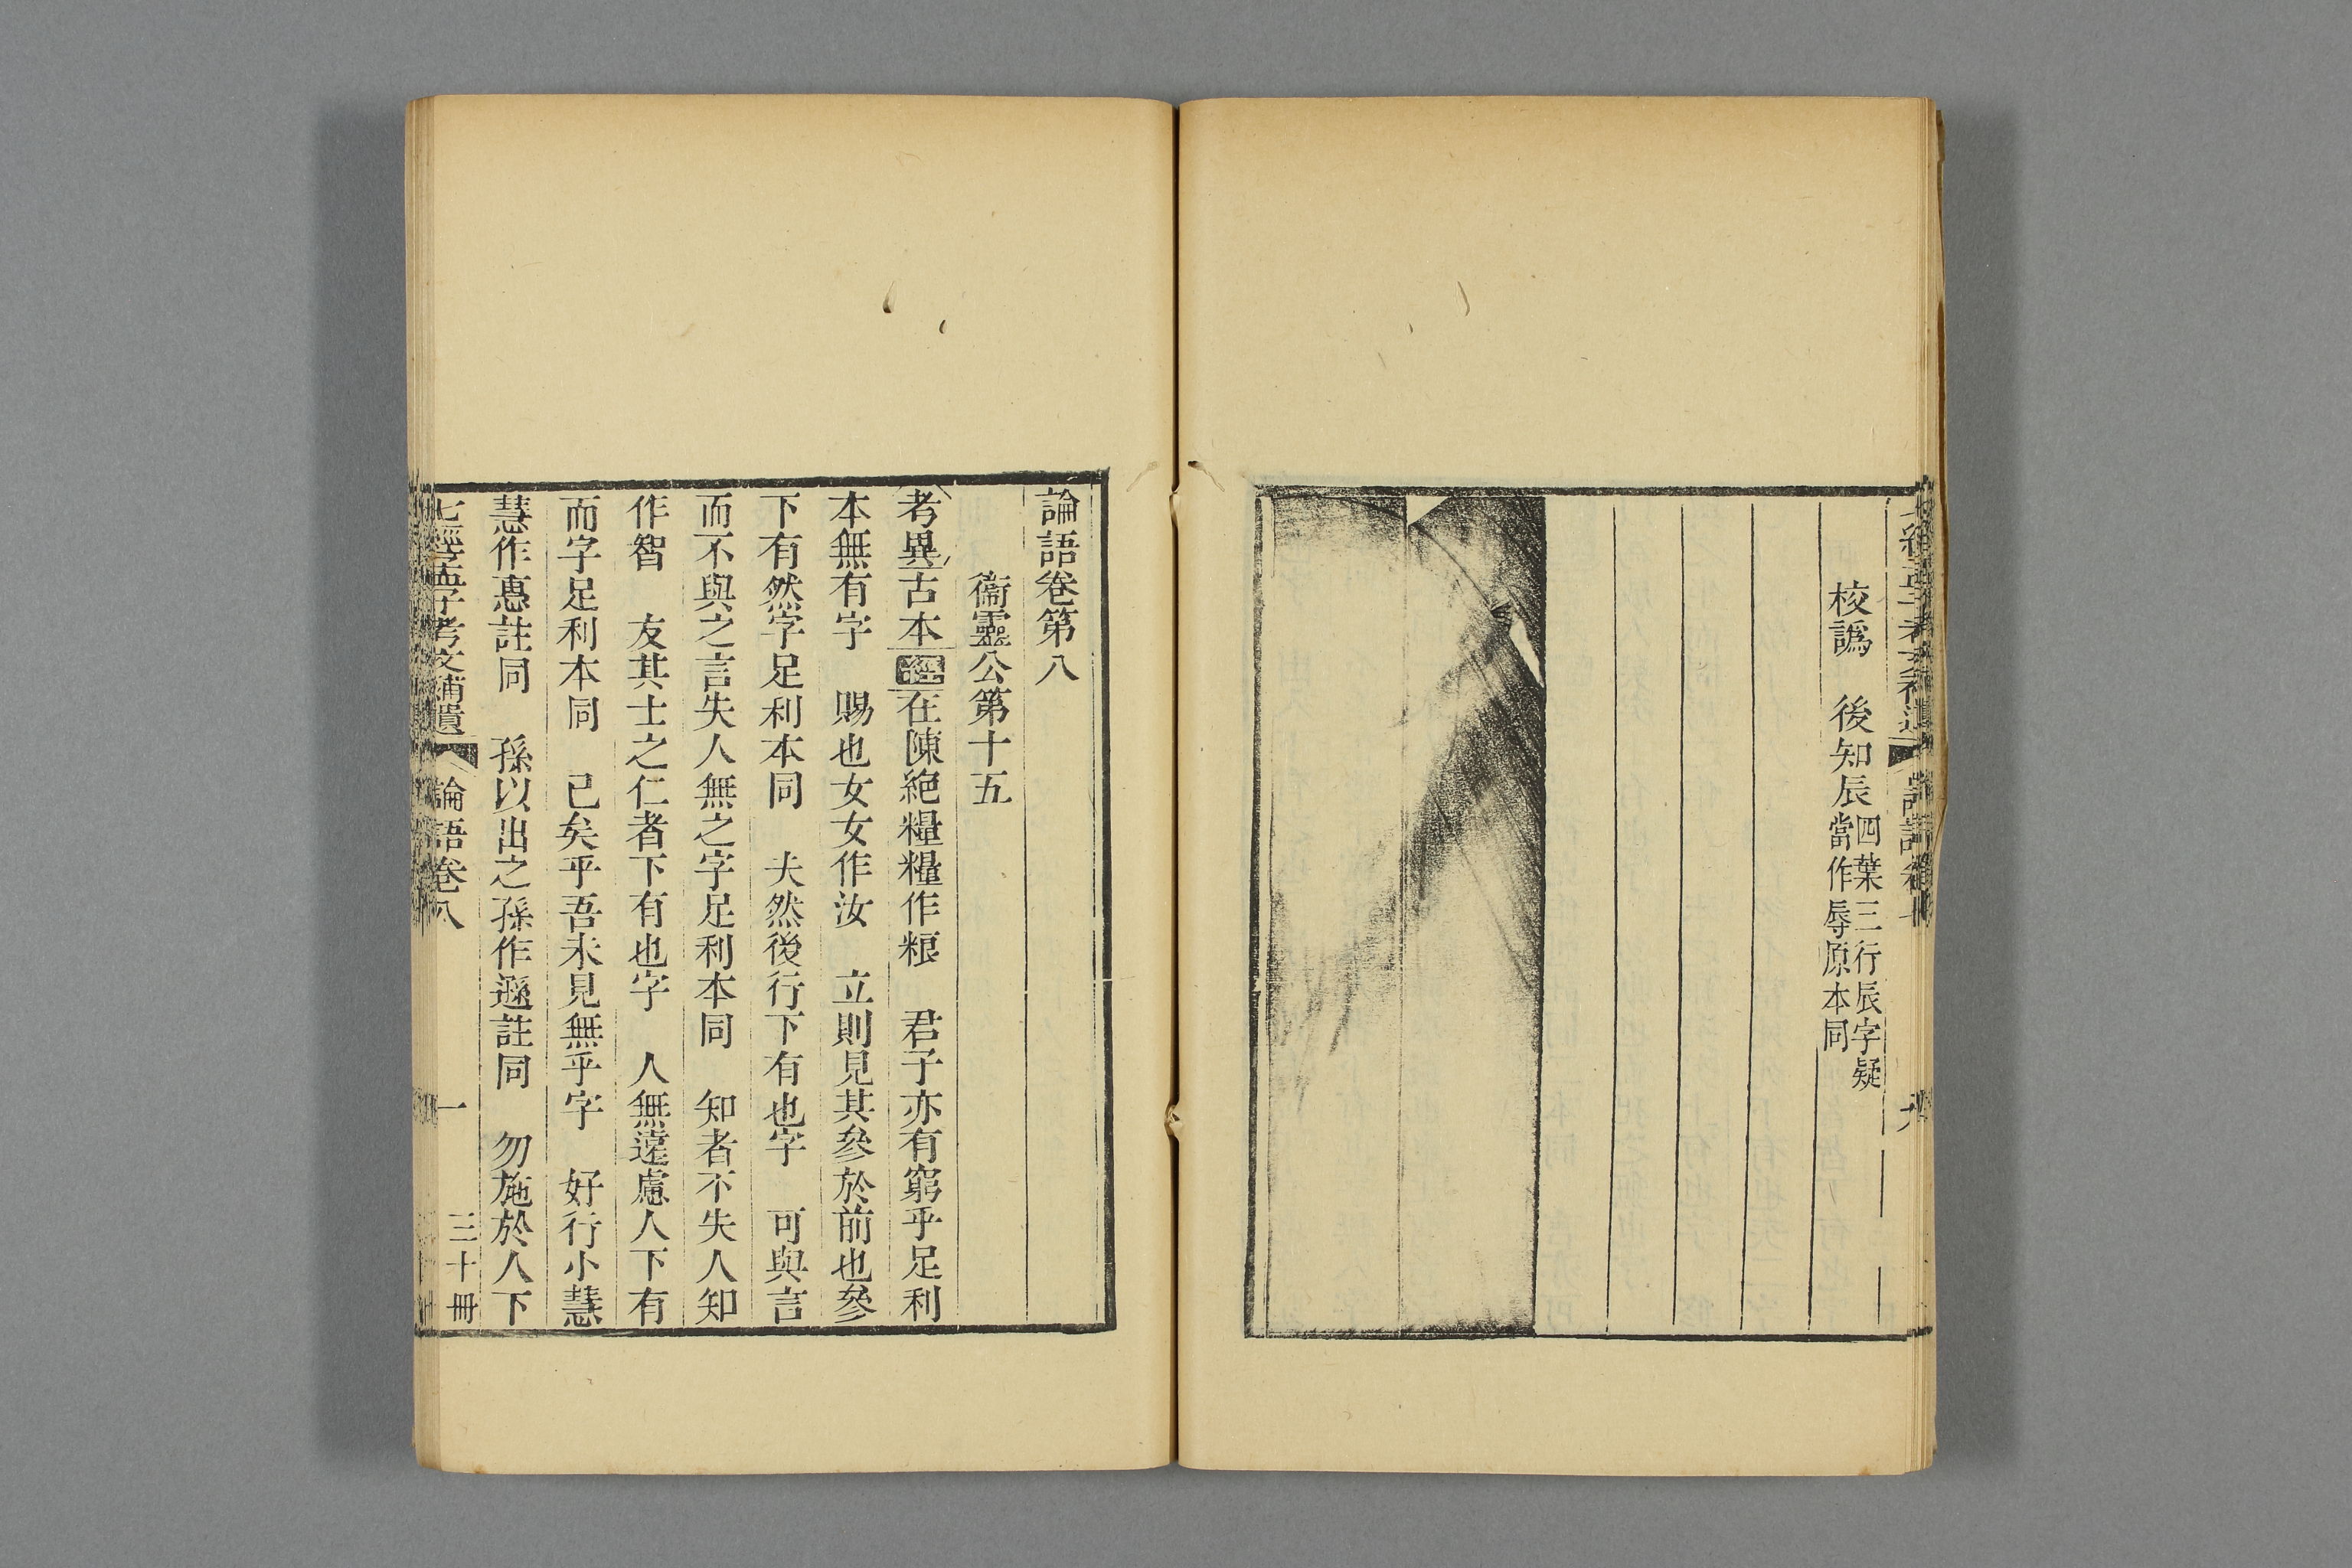 校譌　後知辰四葉三行辰字疑當作辱原本同
論語卷第八
衞靈公第十五
考異古本經在陳絶糧糧作粮　君子亦有窮乎足利
本無有字　賜也女女作汝　立則見其參於前也參
下有然字足利本同　夫然後行下有也字　可與言
而不與之言失人無之字足利本同　知者不失人知
作智　友其士之仁者下有也字　人無遠慮人下有
而字足利本同　已矣乎吾未見無乎字　好行小慧
慧作惠註同　孫以出之孫作遜註同　勿施於人下
七經孟子考文補遺　論語卷八　一　三十冊